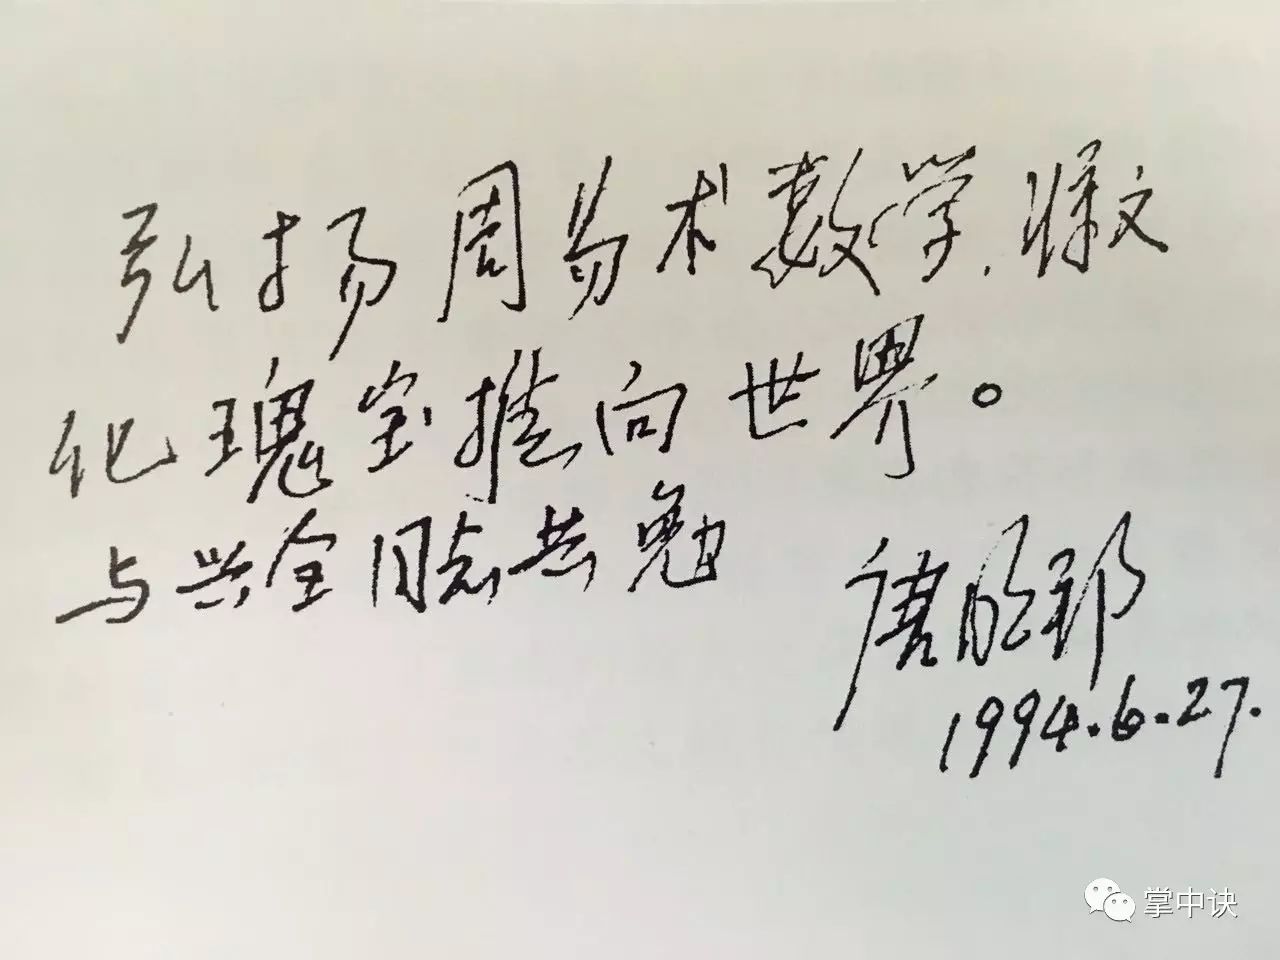 弘扬周易术数学，将文
化瑰宝推向世界。
与兴全同志共勉
唐明邦
1994.6.27.
掌中诀